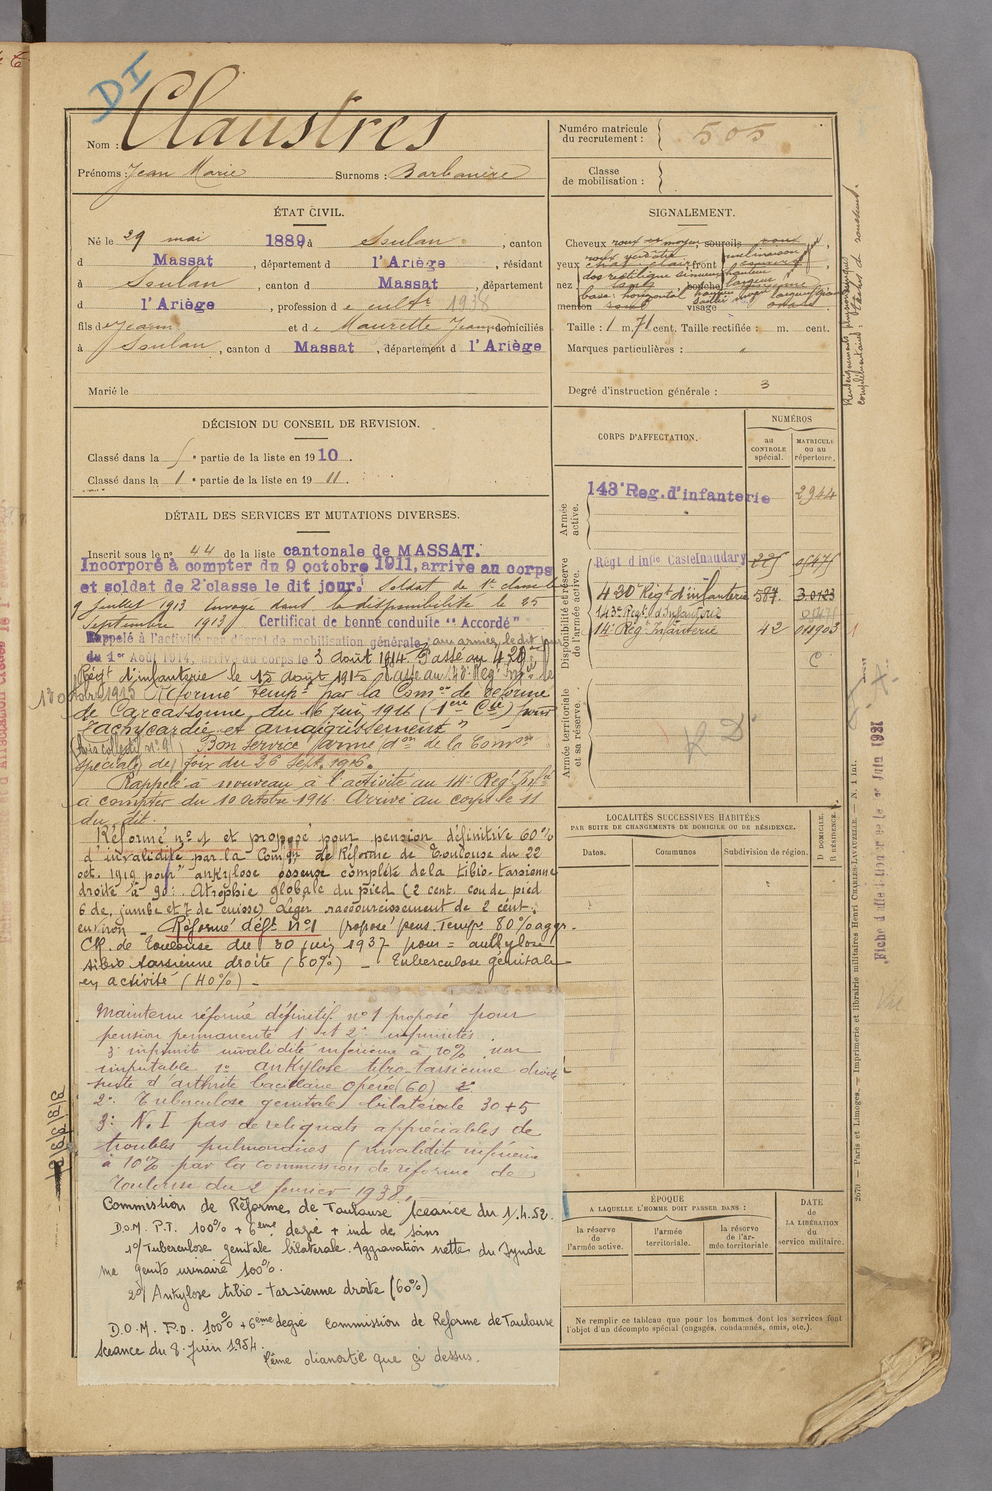 DI
Nom : Claustres
Prénoms : Jean Marie Surnoms : Barbanère
ÉTAT CIVIL.
Né le 29 mai 1889 à Soulan, canton
d Massat, département d l'Ariège, résidant
à Soulan, canton d Massat, département
d l'Ariège, profession d e cultr 1938
fils de Jean et d e Maurette Jeanne, domiciliés
à Soulan, canton d Massat, département d l'Ariège
Marié le
DÉCISION DU CONSEIL DE REVISION.
Classé dans la partie de la liste en 1910.
Classé dans la 1e partie de la liste en 1911.
DÉTAIL DES SERVICES ET MUTATIONS DIVERSES.
Inscrit sous le no 44 de la liste cantonale de MASSAT.
Incorporé à compter du 9 octobre 1911, arrive an corps
et soldat de 2e classe le dit jour. Soldat de 1e classe le
9 juillet 1913 Envoyé dans la disponibilité le 25
Septembre 1913 Certificat de bonne conduite "Accordé"
Rappelé à l'activité par décret de mobilisation générale
du 1er Août 1914, arrivé au corps le 3 août 1914. Passé au 420e
Régt d'infanterie le 15 août 1915 Passé au 143e Reg. Inf. le
1915 Réformé tempre par la Comon de réforme
de Carcassonne du 16 Juin 1916 (1ère Cie) pour
"Tachycardie et amaigrissement"
(avis collectif no 9) Bon service armé don de la Comon
spéciale de foix du 26 Sept. 1916.
Rappelé à nouveau à l'activité au 14e Regt Infie
à compter du 10 octobre 1916. Arrivé au corps le 11
du dit.
Réformé no 1 et proposé pour pension définitive 60%
d'invalidité par la Comon de Réforme de Toulouse du 22
oct. 1919 pour "ankylose osseuse complète de la tibio-tarsienne
droite à 90°. Atrophie globale du pied (2 cent. cou de pied
6 de jambe et 7 de cuisse) Léger raccourcissement de 2 cent.
environ — Réformé déft No 1 proposé pens. temp. 80% aggr.
CR. de Toulouse du 30 juin 1937 pour = ankylose
tibio tarsienne droite (60%) — Tuberculose génitale
en activité (40%) —
Maintenu réformé définitif no 1 proposé pour
pension permanente 1° et 2° infirmités
3° infirmité invalidité inférieure à 10% non
imputable 1° ankylose tibio tarsienne droite
suite d'arthrite bacillaire opérée (60)
2° Tuberculose génitale bilatérale 30+5
3° N.I pas de reliquats appréciables de
troubles pulmonaires (invalidité inférieure
à 10% par la commission de réforme de
Toulouse du 2 février 1938.
Commission de Réformes de Toulouse séance du 1.4.52.
D.O.M. P.T. 100% + 6ème degré + ind de soins
1°/ Tuberculose génitale bilatérale. Aggravation nette du Syndro
me génito urinaire 100%.
2°/ Ankylose tibio-tarsienne droite (60%)
D.O.M. P.D. 100% + 6ème degré commission de Réforme de Toulouse
séance du 8 Juin 1954.
Même diagnostic que ci dessus.
Numéro matricule du recrutement : 505
Classe de mobilisation :
SIGNALEMENT.
Cheveux roux sourcils
yeux front
nez bouche
menton visage
dos rectiligne
base horizontal
Taille : 1 m. 71 cent. Taille rectifiée : m. cent.
Marques particulières :
Degré d'instruction générale : 3
CORPS D'AFFECTATION.
NUMÉROS
au CONTROLE spécial.
MATRICULE ou au répertoire.
Armée active.
143e Reg. d'infanterie 2944
Disponibilité et réserve de l'armée active.
Régt d'infie Castelnaudary
420e Regt d'infanterie 587
143e Regt d'Infanterie
14e Régt Infanterie 42 011903
C
Armée territoriale et sa réserve.
LOCALITÉS SUCCESSIVES HABITÉES
PAR SUITE DE CHANGEMENTS DE DOMICILE OU DE RÉSIDENCE.
Dates. Communes Subdivision de région.
D DOMICILE.
R RÉSIDENCE.
ÉPOQUE
A LAQUELLE L'HOMME DOIT PASSER DANS :
la réserve de l'armée active.
l'armée territoriale.
la réserve de l'armée territoriale
DATE de LA LIBÉRATION du service militaire.
Ne remplir ce tableau que pour les hommes dont les services font
l'objet d'un décompte spécial (engagés, condamnés, omis, etc.).
Renseignements physionomiques
complémentaires : taches de rousseur.
2679 — Paris et Limoges. — Imprimerie et librairie militaires Henri CHARLES-LAVAUZELLE. — N. 1 int.